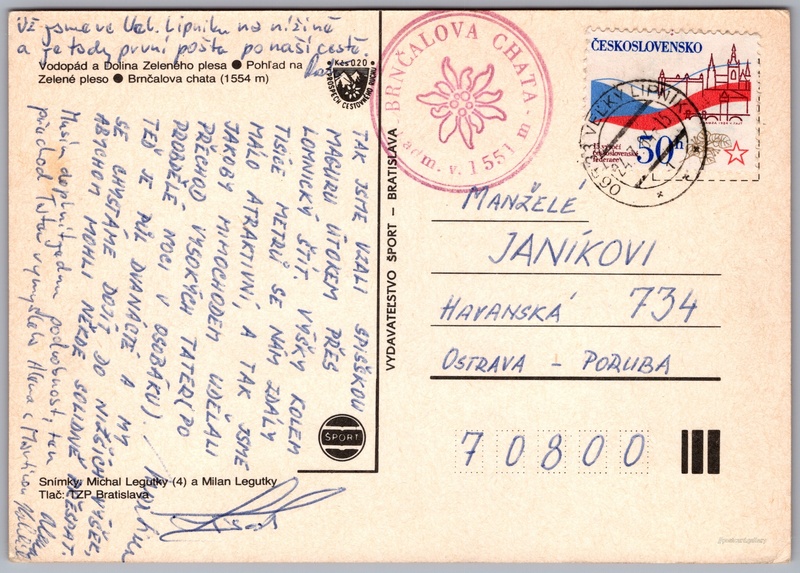 Už jsme ve Vel. Lipníku na nížině
a je tady první pošta po naší cestě.
Vodopád a Dolina Zeleného plesa ● Pohľad na
Zelené pleso ● Brnčalova chata (1554 m)
Kčs 0,20
V PROSPECH CESTOVNÉHO RUCHU
TAK JSME VZALI SPIŠSKOU
MAGURU ÚTOKEM PŘES
LOMNICKÝ ŠTÍT VÝŠKY KOLEM
TISÍCE METRŮ SE NÁM ZDÁLY
MÁLO ATRAKTIVNÍ, A TAK JSME
JAKOBY MIMOCHODEM UDĚLALI
PŘECHOD VYSOKÝCH TATER (PO
PROBDĚLÉ NOCI V OSOBÁKU).
TEĎ JE PŮL DVANÁCTÉ A MY
SE CHYSTÁME DOJÍT DO NIŽŠÍCH VÝŠEK,
ABYCHOM MOHLI NĚKDE SOLIDNĚ PŘESPAT.
Musím doplnit jednu podrobnost, ten
přechod Tater vymysleli Alena s Martinem
Snímky: Michal Legutky (4) a Milan Legutky
Tlač: TZP Bratislava
ŠPORT
VYDAVATEĽSTVO ŠPORT – BRATISLAVA
BRNČALOVA CHATA
n. m. v. 1551 m
ČESKOSLOVENSKO
15. výročí
československé
federace
50h
VEĽKÝ LIPNÍK
MANŽELÉ
JANÍKOVI
HAVANSKÁ 734
OSTRAVA – PORUBA
70800